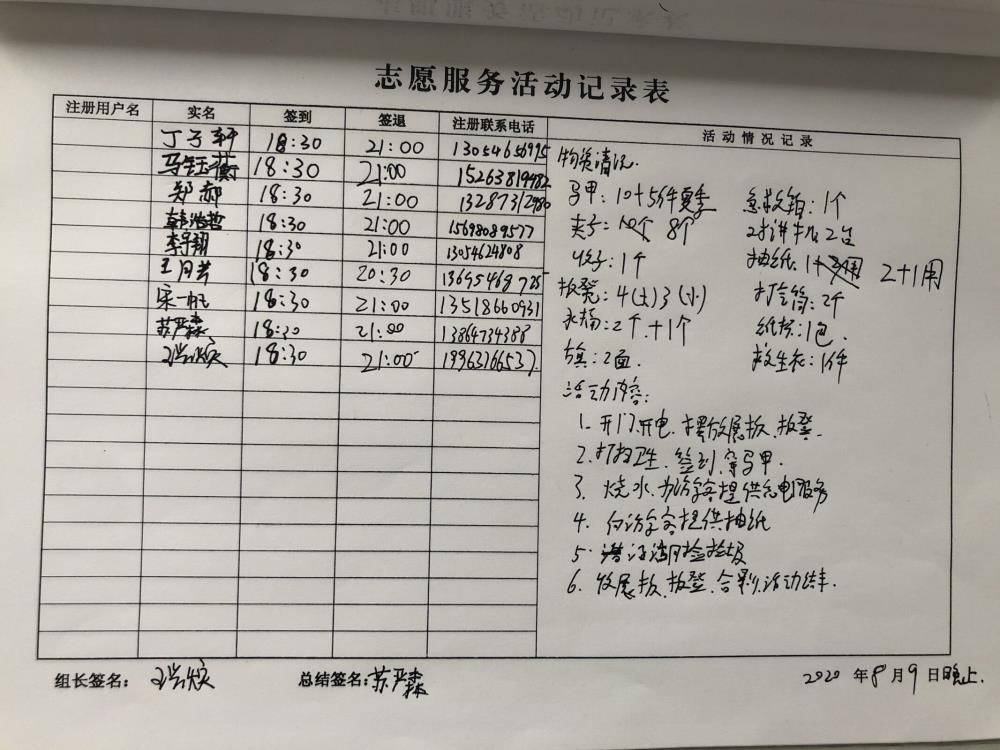 志愿服务活动记录表
注册用户名 实名 签到 签退 注册联系电话 活动情况记录
丁子轩 18:30 21:00 13054656995
18:30 21:00 15263819482
郑郝 18:30 21:00 13287312480
韩浩哲 18:30 21:00 15698089577
李宇翔 18:30 21:00 13054624808
王月芸 18:30 20:30 13695468725
宋一帆 18:30 21:00 13518660931
苏严森 18:30 21:00 13864734388
18:30 21:00 19963166537
物资情况:
马甲:10+5件夏季 急救箱:1个
夹子:10个 8个 对讲机2台
收子:1个 抽纸:1+ 2+1用
板凳:4(大)3(小) 打气筒:2个
水桶:2个+1个 纸杯:1包.
旗:2面. 救生衣:1件
活动内容:
1. 开门、开电、摆放展板、板凳.
2. 打扫卫生、签到、穿马甲.
3. 烧水、为游客提供充电服务
4. 向访客提供抽纸
5. 湖捡垃圾
6. 收展板、板凳、合影、活动结束.
组长签名: 总结签名:苏严森 2020 年 8 月 9 日晚上.